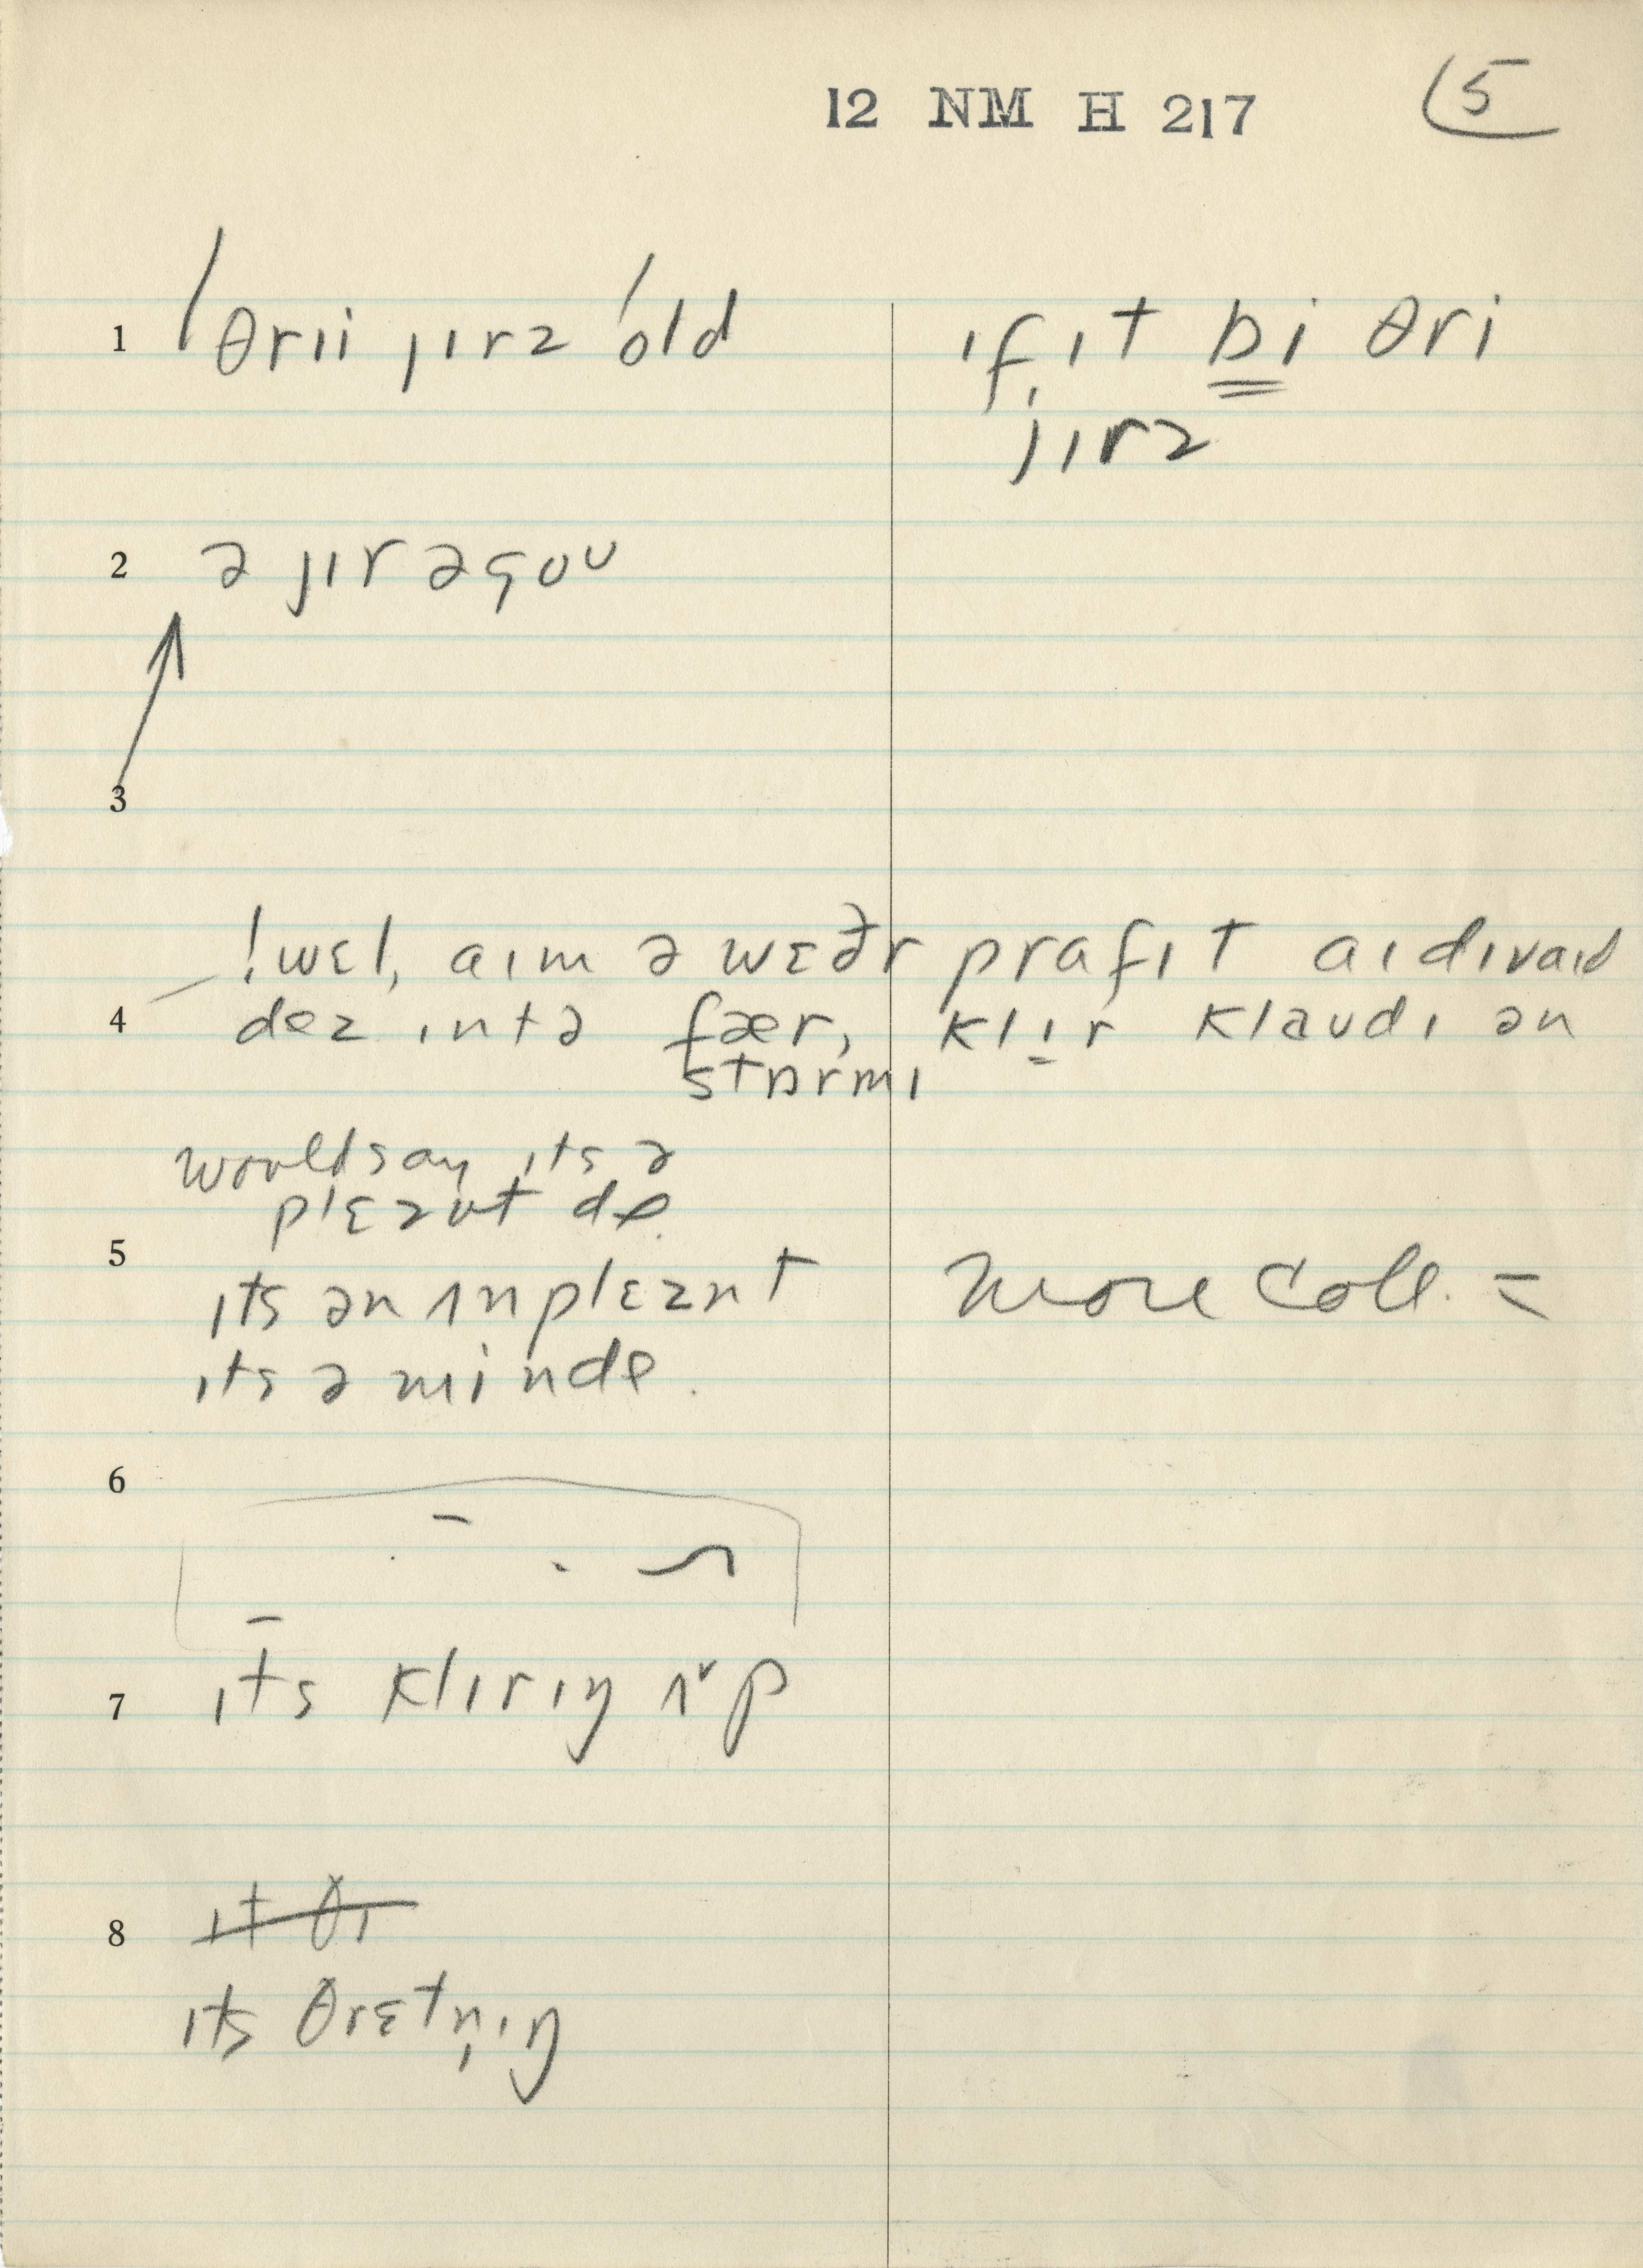 12 NM H 217
5
1 θrɪi jɪrz old
ɪf ɪt bi θri
jɪrz
2 ə jɪr əgoʊ
3
! wɛl, aɪm ə wɛðr prafɪt aɪ dɪvaɪd
4 dez ɪntə fær, klɪr klaʊdɪ ən
stɒrmɪ
would say ɪts ə
plɛznt de.
5
ɪts ən ʌnplɛznt
more coll. =
ɪts ə min de.
6
7 ɪts klɪrɪŋ ʌp
8 ɪt θr
ɪts θrɛtn̩ɪŋ